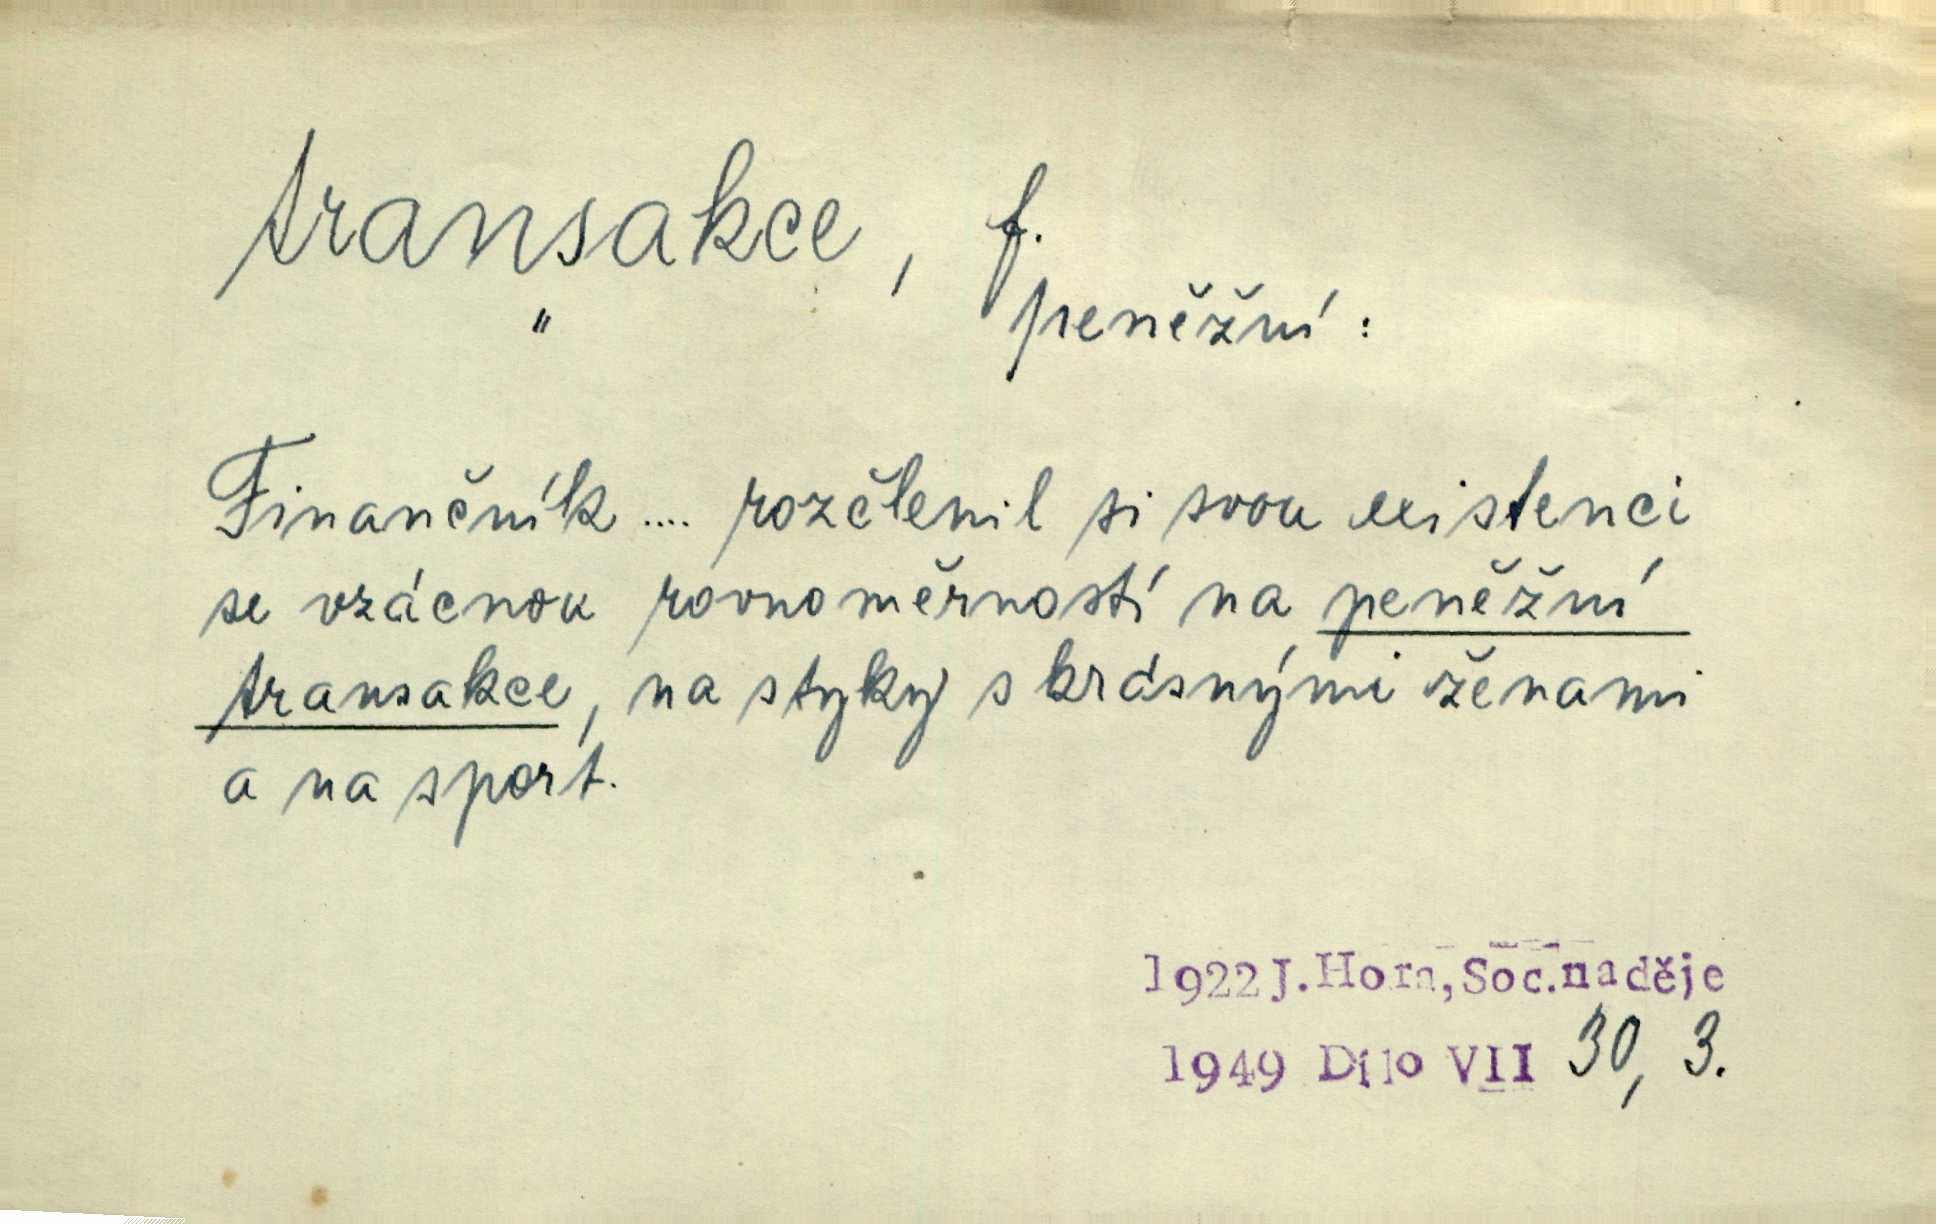 transakce, f.
" peněžní:
Finančník .... rozčlenil si svou existenci
se vzácnou rovnoměrností na peněžní
transakce, na styky s krásnými ženami
a na sport.
1922 J. Hora, Soc. naděje
1949 Dílo VII 30, 3.